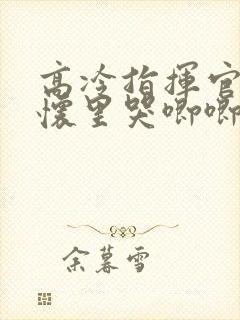 高冷指揮官
懷里哭唧唧
余暮雪